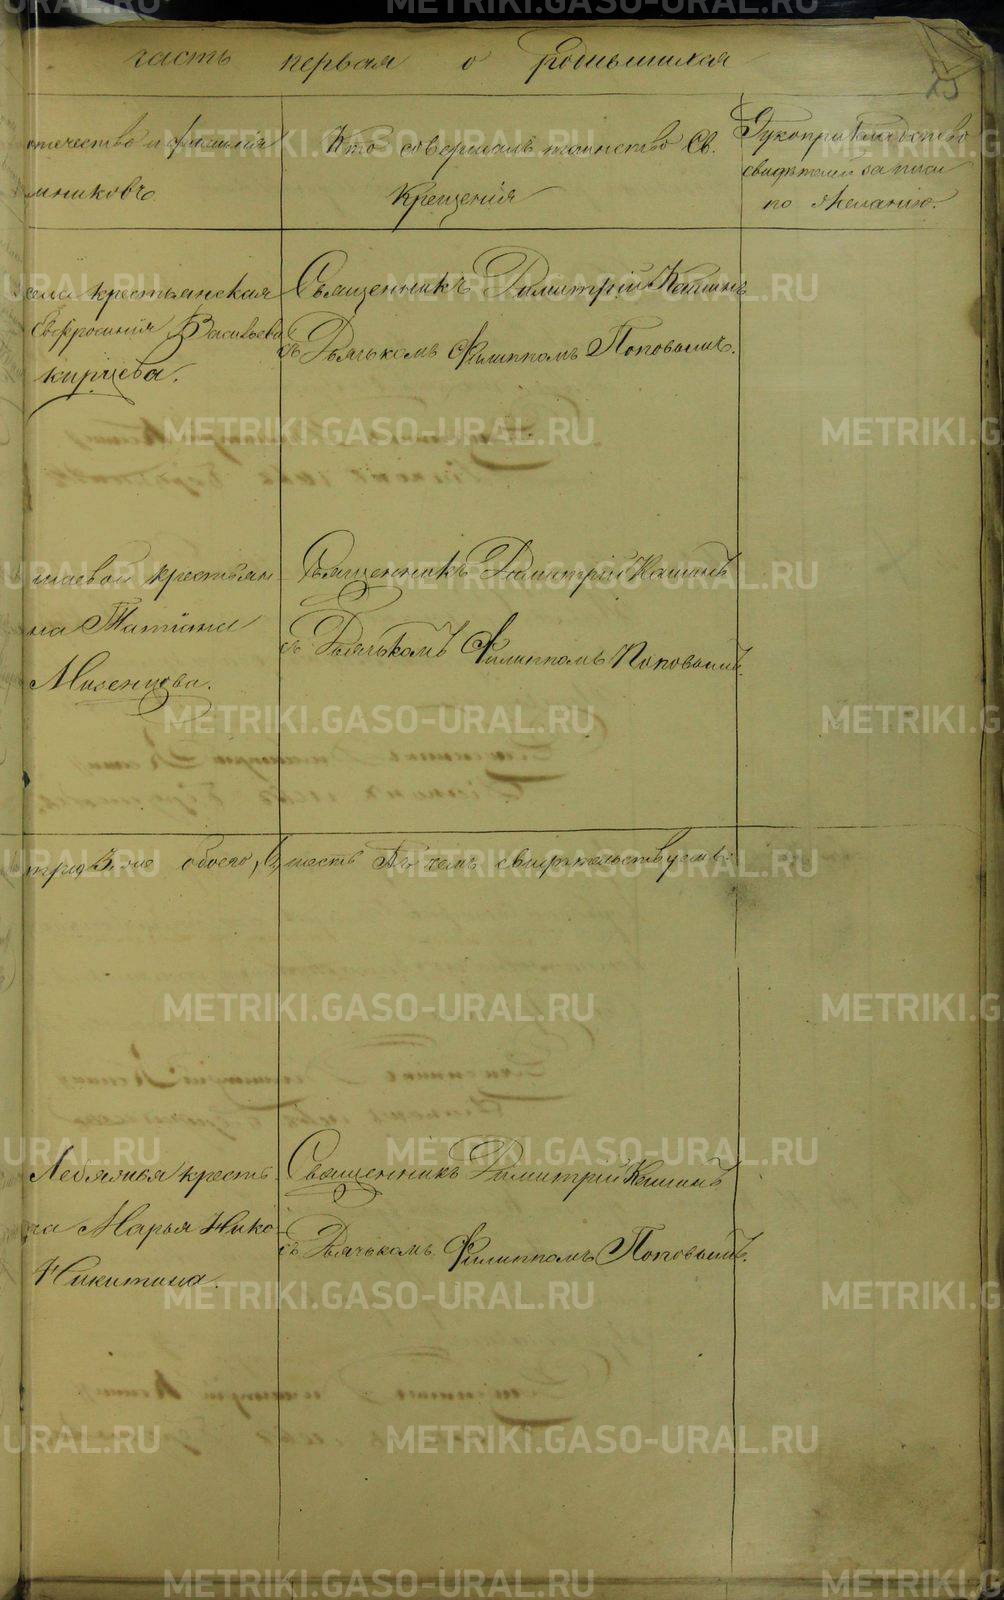 часть первая о родившихся
25
отчество и фамилія
мниковъ
Кто совершалъ таинство Св.
Крещенія
Рукоприкладство
свидѣтелей записи
по желанію.
села крестьянская
Евфросинія Васильева
Кирцева.
Священникъ Димитрій Кашинъ
съ Дьячькомъ Филиппомъ Поповымъ.
шаевой крестьян
на Татіана
Мизенцова.
Священникъ Димитрій Кашинъ
съ Дьячькомъ Филиппомъ Поповымъ.
три, 3. не обоего, 6, шесть Въ чемъ свидѣтельствуемъ:
крестья
на Марья Нико
Никитина.
Священникъ Димитрій Кашинъ
съ Дьячькомъ Филиппомъ Поповымъ.
METRIKI.GASO-URAL.RU